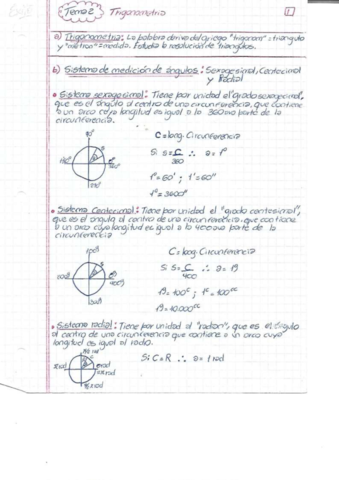 Tema 2 Trigonometría 1
a) Trigonometría: La palabra deriva del griego "trigonom" = triángulo
y "metron" = medida. Estudia la resolución de triángulos.
b) Sistema de medición de ángulos: Sexagesimal, Centesimal
y Radial
• Sistema sexagesimal: Tiene por unidad el grado sexagesimal,
que es el ángulo al centro de una circunferencia, que contiene
a un arco cuya longitud es igual a la 360ava parte de la
circunferencia.
90°
C = long. Circunferencia
180°
Si S = C/360 ∴ a = 1°
1° = 60' ; 1' = 60''
1° = 3600''
• Sistema Centesimal: Tiene por unidad el "grado centesimal",
que es el ángulo al centro de una circunferencia que contiene
a un arco cuya longitud es igual a la 400ava parte de la
circunferencia
C = long. Circunferencia
Si S = C/400 ∴ a = 1g
1g = 100c ; 1c = 100cc
1g = 10.000cc
• Sistema radial: Tiene por unidad al "radian", que es el ángulo
al centro de una circunferencia que contiene a un arco cuya
longitud es igual al radio.
Si C = R ∴ a = 1 rad
π rad